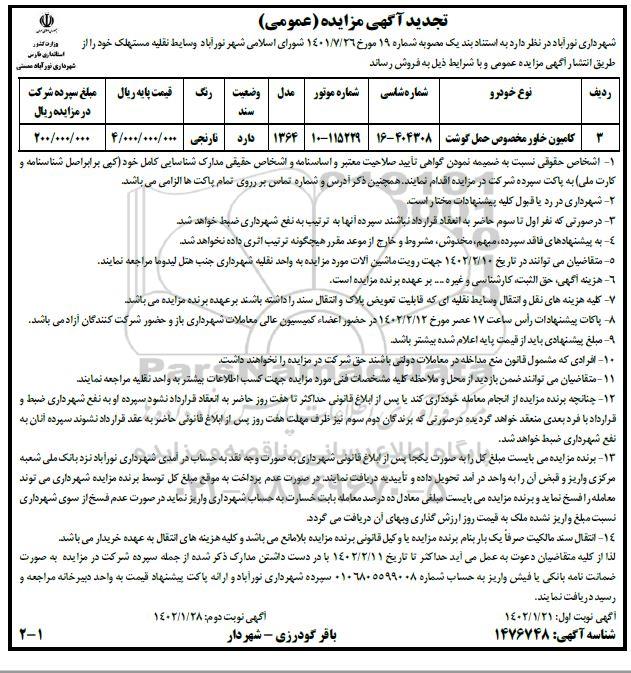 تجدید آگهی مزایده (عمومی)
وزارت کشور
استانداری فارس
شهرداری نورآباد ممسنی
شهرداری نورآباد در نظر دارد به استناد بند یک مصوبه شماره ۱۹ مورخ ۱۴۰۱/۷/۲۶ شورای اسلامی شهر نورآباد وسایط نقلیه مستهلک خود را از
طریق انتشار آگهی مزایده عمومی و با شرایط ذیل به فروش رساند
ردیف نوع خودرو شماره شاسی شماره موتور مدل وضعیت سند رنگ قیمت پایه ریال مبلغ سپرده شرکت در مزایده ریال
۳ کامیون خاور مخصوص حمل گوشت ۱۶-۴۰۴۳۰۸ ۱۰-۱۱۵۲۲۹ ۱۳۶۴ دارد نارنجی ۴/۰۰۰/۰۰۰/۰۰۰ ۲۰۰/۰۰۰/۰۰۰
۱- اشخاص حقوقی نسبت به ضمیمه نمودن گواهی تأیید صلاحیت معتبر و اساسنامه و اشخاص حقیقی مدارک شناسایی کامل خود (کپی برابر اصل شناسنامه و
کارت ملی) به پاکت سپرده شرکت در مزایده اقدام نمایند. همچنین ذکر آدرس و شماره تماس بر روی تمام پاکت ها الزامی می باشد.
۲- شهرداری در رد یا قبول کلیه پیشنهادات مختار است.
۳- درصورتی که نفر اول تا سوم حاضر به انعقاد قرارداد نباشند سپرده آنها به ترتیب به نفع شهرداری ضبط خواهد شد.
۴- به پیشنهادهای فاقد سپرده، مبهم، مخدوش، مشروط و خارج از موعد مقرر هیچگونه ترتیب اثری داده نخواهد شد.
۵- متقاضیان می توانند در تاریخ ۱۴۰۲/۲/۱۰ جهت رویت ماشین آلات مورد مزایده به واحد نقلیه شهرداری جنب هتل لیدوما مراجعه نمایند.
۶- هزینه آگهی، حق الثبت، کارشناسی و غیره .... بر عهده برنده مزایده است.
۷- کلیه هزینه های نقل و انتقال وسایط نقلیه ای که قابلیت تعویض پلاک و انتقال سند را داشته باشند بر عهده برنده مزایده می باشد.
۸- پاکات پیشنهادات رأس ساعت ۱۷ عصر مورخ ۱۴۰۲/۲/۱۲ در حضور اعضاء کمیسیون عالی معاملات شهرداری باز و حضور شرکت کنندگان آزاد می باشد.
۹- مبلغ پیشنهادی باید از قیمت پایه اعلام شده بیشتر باشد.
۱۰- افرادی که مشمول قانون منع مداخله در معاملات دولتی باشند حق شرکت در مزایده را نخواهند داشت.
۱۱- متقاضیان می توانند ضمن بازدید از محل و ملاحظه کلیه مشخصات فنی مورد مزایده جهت کسب اطلاعات بیشتر به واحد نقلیه مراجعه نمایند.
۱۲- چنانچه برنده مزایده از انجام معامله خودداری کند یا پس از ابلاغ قانونی حداکثر تا هفت روز حاضر به انعقاد قرارداد نشود سپرده او به نفع شهرداری ضبط و
قرارداد با فرد بعدی منعقد خواهد گردید در صورتی که برندگان دوم سوم نیز ظرف مهلت هفت روز پس از ابلاغ قانونی حاضر به عقد قرارداد نشوند سپرده آنان به
نفع شهرداری ضبط خواهد شد.
۱۳- برنده مزایده می بایست مبلغ کل را به صورت یکجا پس از ابلاغ قانونی شهرداری به صورت وجه نقد به حساب در آمدی شهرداری نورآباد نزد بانک ملی شعبه
مرکزی واریز و قبض آن را به واحد در آمد تحویل داده و تأییدیه دریافت نمایند. در صورت عدم پرداخت به موقع مبلغ کل توسط برنده مزایده شهرداری می تواند
معامله را فسخ نماید و برنده مزایده می بایست مبلغی معادل ده درصد معامله بابت خسارت به حساب شهرداری واریز نماید در صورت عدم فسخ از سوی شهرداری
نسبت مبلغ واریز نشده ملک به قیمت روز ارزش گذاری وبهای آن دریافت می گردد.
۱۴- انتقال سند مالکیت صرفاً یک بار بنام برنده مزایده یا وکیل قانونی برنده مزایده بلامانع می باشد و کلیه هزینه های انتقال به عهده خریدار می باشد.
لذا از کلیه متقاضیان دعوت به عمل می آید حداکثر تا تاریخ ۱۴۰۲/۲/۱۱ با در دست داشتن مدارک ذکر شده از جمله سپرده شرکت در مزایده به صورت
ضمانت نامه بانکی یا فیش واریز به حساب شماره ۰۱۰۶۸۰۵۵۹۹۰۰۸ سپرده شهرداری نورآباد و ارائه پاکت پیشنهاد قیمت به واحد دبیرخانه مراجعه و
رسید دریافت نمایند.
آگهی نوبت اول: ۱۴۰۲/۱/۲۱ آگهی نوبت دوم: ۱۴۰۲/۱/۲۸
شناسه آگهی: ۱۴۷۶۷۴۸ باقر گودرزی - شهردار ۲-۱
ParsNamadData
پایگاه اطلاع رسانی مناقصه و مزایده
۰۲۱-۸۸۳۴۹۶۷۰-۵